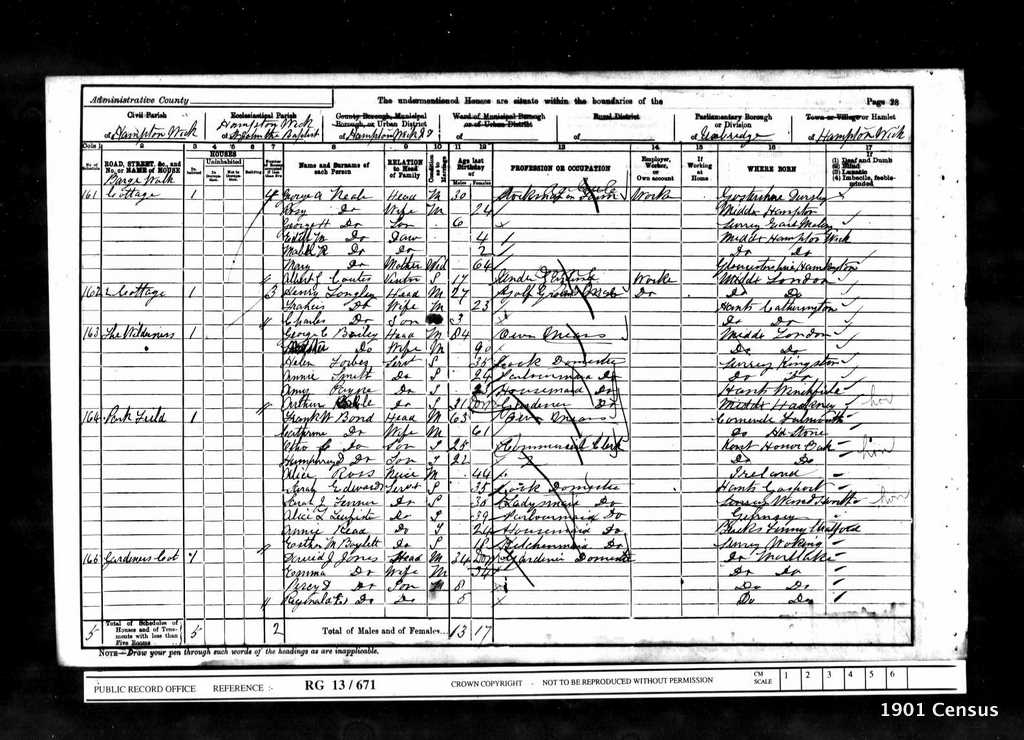 Administrative County
The undermentioned Houses are situate within the boundaries of the
Page 28
Civil Parish
of Hampton Wick
Ecclesiastical Parish
Hampton Wick
of St John the Baptist
County Borough, Municipal Borough, or Urban District
of Hampton Wick
Ward of Municipal Borough or of Urban District
of
Rural District
of
Parliamentary Borough or Division
of Uxbridge
Town or Village or Hamlet
of Hampton Wick
Cols 1 2 3 4 5 6 7 8 9 10 11 12 13 14 15 16 17
ROAD, STREET, &c., and No. or NAME of HOUSE
HOUSES
Uninhabited
Name and Surname of each Person
RELATION to Head of Family
Condition as to Marriage
Age last Birthday of
Males Females
PROFESSION OR OCCUPATION
Employer, Worker, or Own account
If Working at Home
WHERE BORN
(1) Deaf and Dumb
(2) Blind
(3) Lunatic
(4) Imbecile, feeble-minded
Barge Walk
161 Cottage 1 4 George A Neale Head M 30 Worker
Rosy Do Wife M 24 Middx Hampton
George H Do Son 6 Surrey East Molesey
Edith M Do Daur 4 Middx Hampton Wick
Do Do 2 Do Do
Mary Do Mother Wid 64 Gloucestershire
Albert Coates Visitor S 17 Worker Middx London
162 Cottage 1 3 Henry Longley Head M 27 Golf Do Do Do
Frances Do Wife M 23 Hants Catherington
Charles Do Son 3 Do Do
163 The Wilderness 1 George C Bailey Head M 84 Own Means Middx London
Do Wife M Do Do
Helen Forbes Servt S 35 Cook Domestic Surrey Kingston
Annie Smith Do S 24 Parlourmaid Do Do Do
Amy Payne Do S Housemaid Do Hants Winchfield
Arthur Do S 21 Gardener Do Middx Hackney
164 Park Field 1 Frank W Bond Head M 63 Own Means Cornwall Falmouth
Catherine Do Wife M 61 Do
Otho C Do Son S 25 Commercial Clerk Kent Honor Oak
Humphrey Do Son S 22 Do Do
Alice Ross Niece M 44 Ireland
Sarah Edwards Servt S 35 Cook Domestic Hants Gosport
Sarah J Fenner Do S 30 Ladysmaid Do Surrey Wandsworth
Alice L Do S 39 Parlourmaid Do Guernsey
Annie Read Do S 24 Housemaid Do Bucks Fenny Stratford
Esther M Boylett Do S 18 Kitchenmaid Do Surrey Woking
165 Gardeners Cot 1 David J Jones Head M 34 Gardener Domestic Do Mortlake
Emma Do Wife M 34 Do Do
Percy D Do Son 8 Do Do
Reginald E Do Do 5 Do Do
5 Total of Schedules of Houses and of Tenements with less than Five Rooms 5 2 Total of Males and of Females... 13 17
NOTE—Draw your pen through such words of the headings as are inapplicable.
PUBLIC RECORD OFFICE REFERENCE :- RG 13/671 CROWN COPYRIGHT - NOT TO BE REPRODUCED WITHOUT PERMISSION CM SCALE 1 2 3 4 5 6
1901 Census